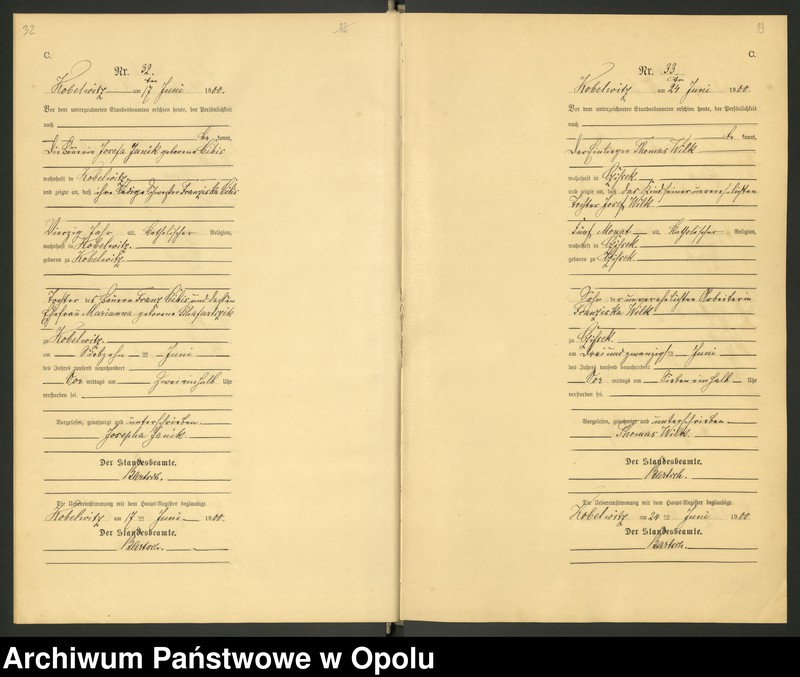 32
C.
Nr. 32.
Kobelwitz am 17ten Juni 1900.
Vor dem unterzeichneten Standesbeamten erschien heute, der Persönlichkeit
nach
be kannt,
die Bäuerin Josefa Janik geborene Cibis
wohnhaft in Kobelwitz
und zeigte an, daß ihre ledige Schwester Franziska Cibis
Vierzig Jahr alt, katholischer Religion,
wohnhaft in Kobelwitz
geboren zu Kobelwitz
Tochter des Bauern Franz Cibis und dessen
Ehefrau Marianna geborene
zu Kobelwitz
am Siebzehnten Juni
des Jahres tausend neunhundert
Vor mittags um Zweieinhalb Uhr
verstorben sei.
Vorgelesen, genehmigt und unterschrieben.
Josepha Janik.
Der Standesbeamte.
Bartsch.
Die Uebereinstimmung mit dem Haupt-Register beglaubigt.
Kobelwitz am 17ten Juni 1900.
Der Standesbeamte.
Bartsch.
33
C.
Nr. 33.
Kobelwitz am 24ten Juni 1900.
Vor dem unterzeichneten Standesbeamten erschien heute, der Persönlichkeit
nach
be kannt,
der Einlieger Thomas Wilk
wohnhaft in Dzisrek
und zeigte an, daß das Kind seiner unverehelichten
Tochter Josef Wilk
Fünf Monat alt, katholischer Religion,
wohnhaft in
geboren zu
Sohn der unverehelichten Arbeiterin
Franziska Wilk
zu
am Dreiundzwanzigsten Juni
des Jahres tausend neunhundert
Vor mittags um Siebeneinhalb Uhr
verstorben sei.
Vorgelesen, genehmigt und unterschrieben.
Thomas Wilk.
Der Standesbeamte.
Bartsch.
Die Uebereinstimmung mit dem Haupt-Register beglaubigt.
Kobelwitz am 24ten Juni 1900.
Der Standesbeamte.
Bartsch.
Archiwum Państwowe w Opolu